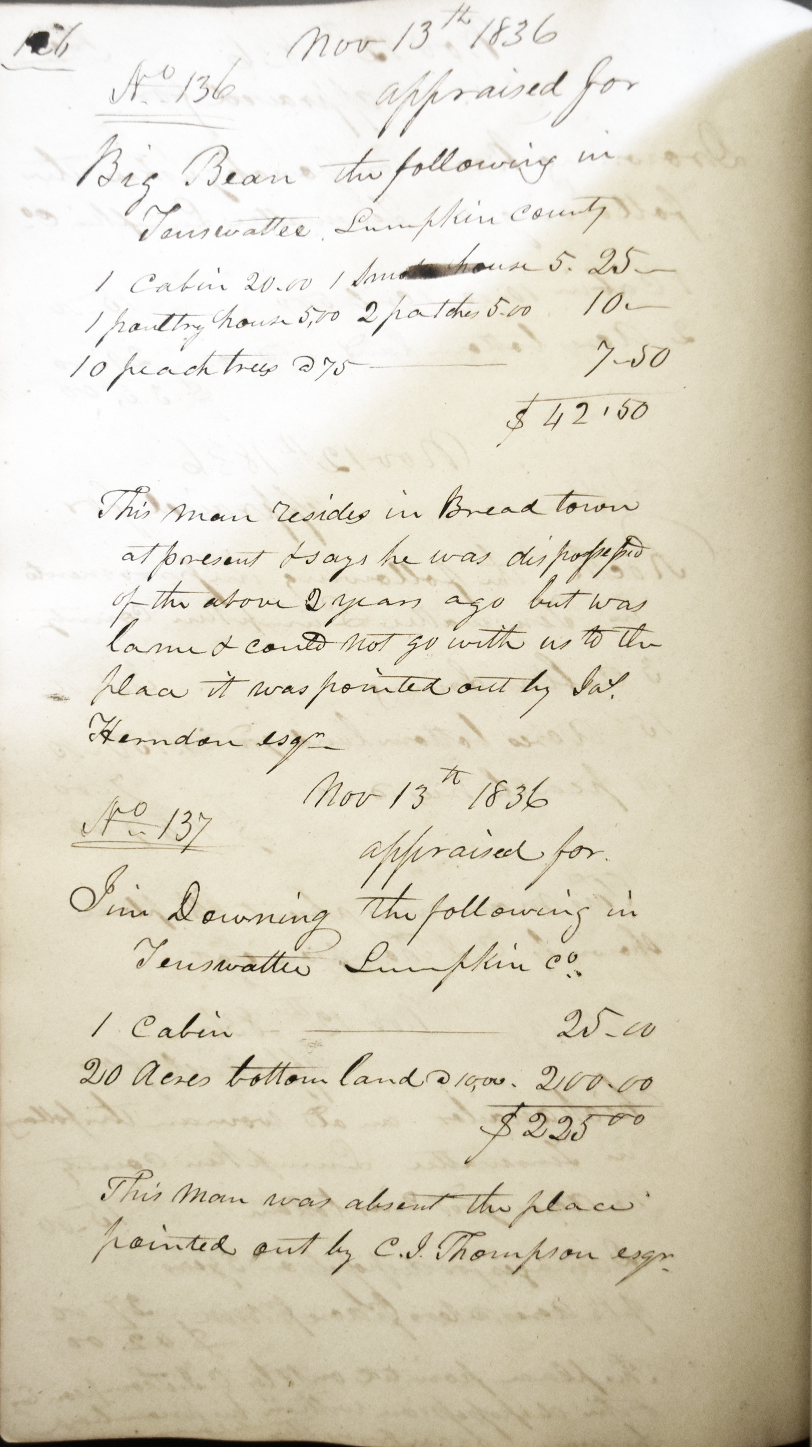 Nov 13th 1836
No 136
appraised for
Big Bean the following in
Tenswattee Lumpkin County
1 Cabin 20.00 1 Smoke house 5. 25—
1 poultry house 5,00 2 patches 5.00 10.—
10 peach trees @ 75 7.50
$ 42.50
This man resides in Bread town
at present & says he was dispossessed
of the above 2 years ago but was
lame & could not go with us to the
place it was pointed out by Jas.
Herndon esqr
Nov 13th 1836
No 137
appraised for.
Jim Downing the following in
Tenswattee Lumpkin Co.
1 Cabin 25.00
20 Acres bottom land @ 10,00. 200.00
$ 225 00
This man was absent the place
pointed out by C.J. Thompson esqr